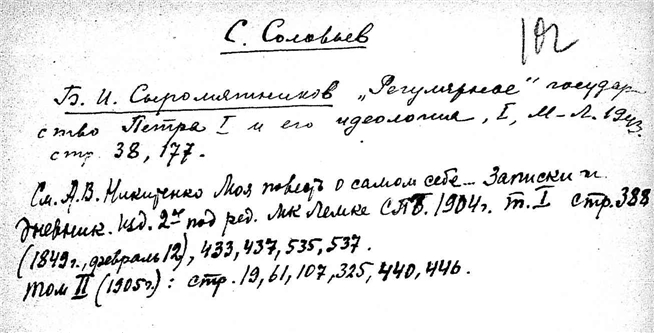 С. Соловьев
102
Б. И. Сыромятников „Регулярное" государ-
ство Петра I и его идеология, I, М-Л. 1943.
стр. 38, 177.
См. А. В. Никитенко Моя повесть о самом себе... Записки и
дневник. Изд. 2ое под ред. МК Лемке СПб. 1904г. т. I стр. 388
(1849г., февраль 12), 433, 437, 535, 537.
Том II (1905г.): стр. 19, 61, 107, 325, 440, 446.